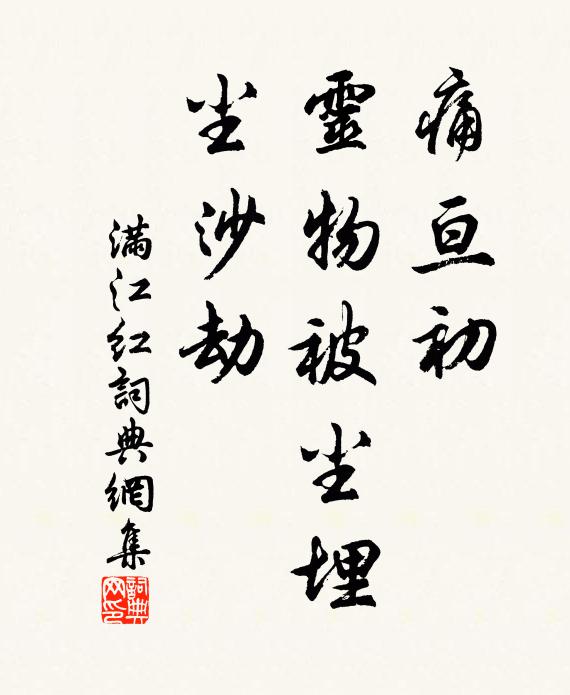 痛亘初
靈物被尘埋
尘沙劫
满江红詞典網集
詞典网印